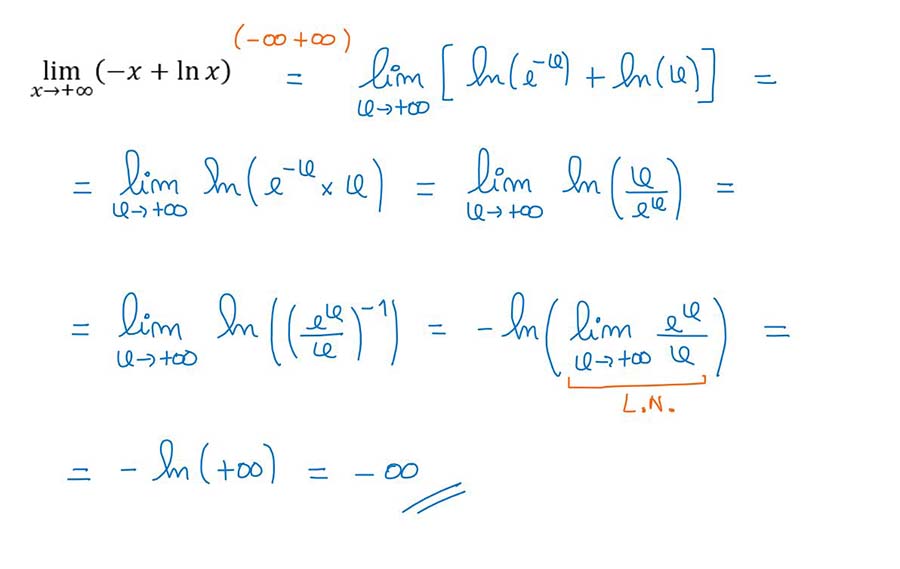 (-∞ +∞)
lim x→+∞ (−x + ln x) = lim x→+∞ [ln(e^-x) + ln(x)] =
= lim x→+∞ ln(e^-x × x) = lim x→+∞ ln(x/e^x) =
= lim x→+∞ ln((e^x/x)^-1) = -ln(lim x→+∞ e^x/x) =
L.N.
= -ln(+∞) = -∞